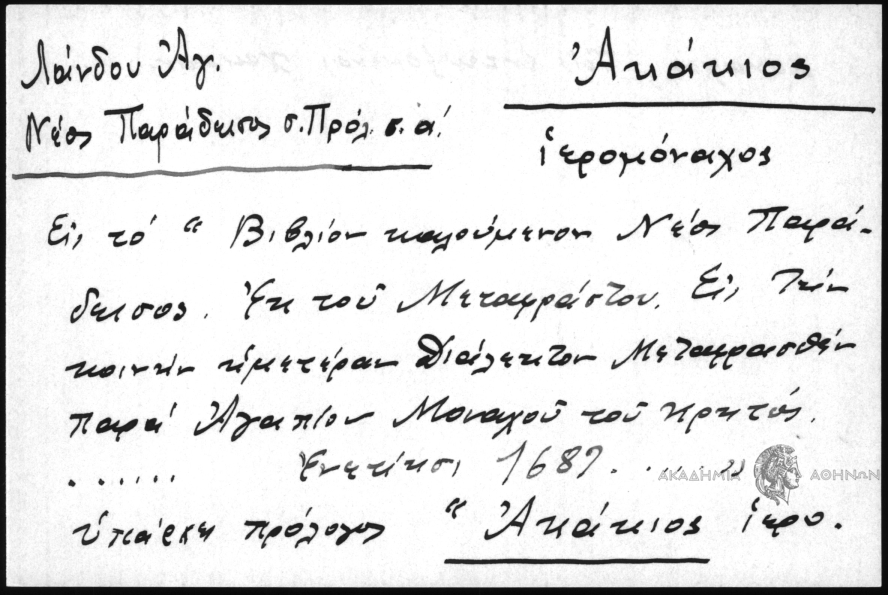 Λάνδου Ἀγ.
Νέος Παράδεισος σ. Πρόλ. σ. α΄.
Ἀκάκιος
ἱερομόναχος
Εἰς τό “Βιβλίον καλούμενον Νέος Παρά-
δεισος. Ἐκ τοῦ Μεταφράστου. Εἰς τὴν
κοινὴν ἡμετέραν διάλεκτον Μεταφρασθέν
παρά Ἀγαπίου Μοναχοῦ τοῦ Κρητός.
....... Ἐνετίησι 1689.....”
ὑπάρχει πρόλογος “Ἀκάκιος ἱερο.
ΑΚΑΔΗΜΙΑ ΑΘΗΝΩΝ